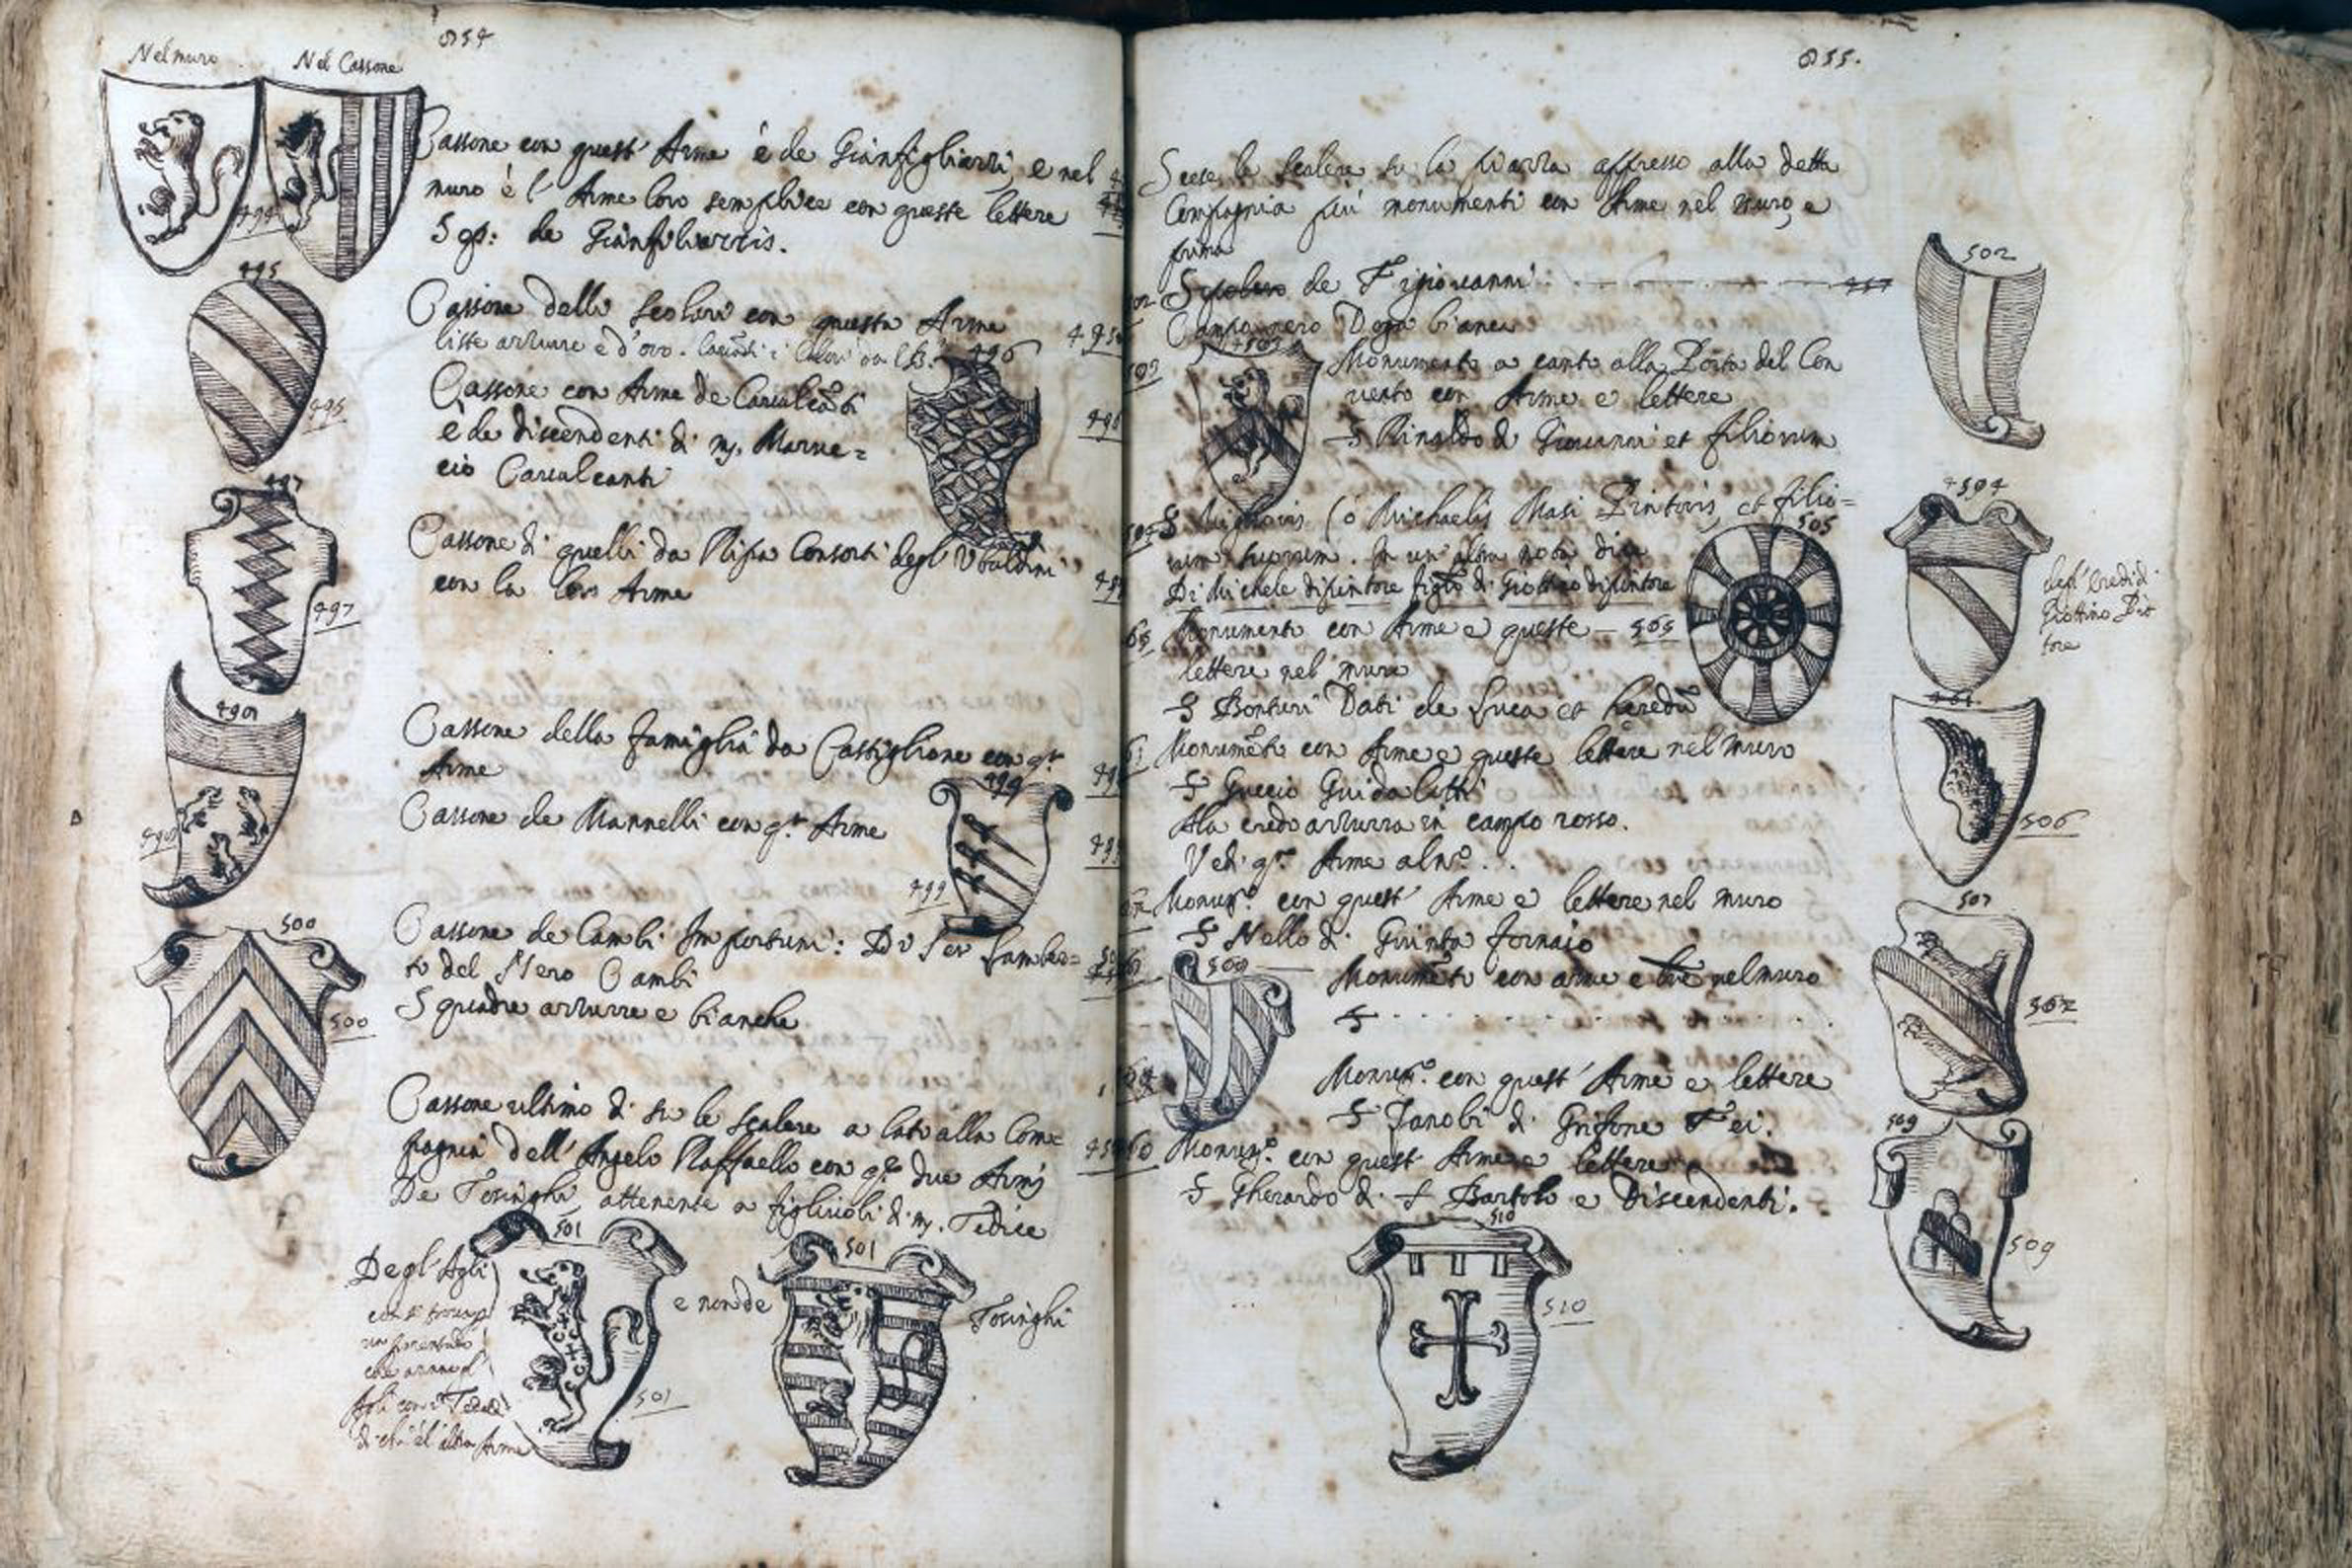 854
Nel muro Nel Cassone
Cassone con quest' Arme è de Gianfigliazzi, e nel
muro è l' Arme loro semplice con queste lettere
S gũ: de Gianfiliazzis.
494
495
Cassone delli Scolari con questa Arme 495
liste azzurre e d'oro.
496
Cassone con Arme de Cavalcãti
È de discendenti di mſ. Mar
cio Cavalcanti
495
497
Cassone di quelli da Pisa Consorti degl' Ubaldini
con la loro Arme
497
498
Cassone della famiglia da Castiglione con qᵗᵃ
Arme
499
Cassone de Mannelli con qᵗᵃ Arme
498
499
500
Cassone de Cambi Importuni: Di Ser Lamber=
to del Nero Cambi
Squadre azzurre e bianche
500
Cassone ultimo di su le scalere a lato alla Com=
pagnia dell' Angelo Raffaello con qᵗᵉ due Armi
De Tosinghi, attenente a figliuoli di mſ. Tedice
501 501
Degl' Agli e non de Tosinghi
501
855.
Scese le scalere su la piazza appresso alla detta
Compagnia più monumenti con Arme nel muro, e
prima
de Figiovanni
Campo nero Doga bianca
502
503
Monumento a canto alla Porta del Con
vento con Arme e lettere
S Rinaldo di Giovanni et filiorum
504
S Migliovis (o Michaelis Masi Pintoris, et filio=
rum suorum. In un' altra nota dice
Di Michele dipintore figlo di Giottino dipintore
505
degl' Eredi di
Giottino Pit
tore
Monumento con Arme e queste — 505
lettere nel muro
S Bonturi Dati de Luca et heredũ
Monumẽto con Arme e queste lettere nel muro
S Guccio Guidalotti
Ala credo azzurra in campo rosso.
Vedi qᵗᵃ Arme al nº . . .
506
Monumº. con quest' Arme e lettere nel muro
S Nello di Giunta fornaio
507
508
Monumẽto con arme e lrẽ nel muro
S . . . . . . . .
507
Monumº. con quest' Arme e lettere
S Zanobi di Grifone Fei.
509
Monumº. con quest' Arme e lettere
S Gherardo di S Bartolo e Discendenti.
509
510
510